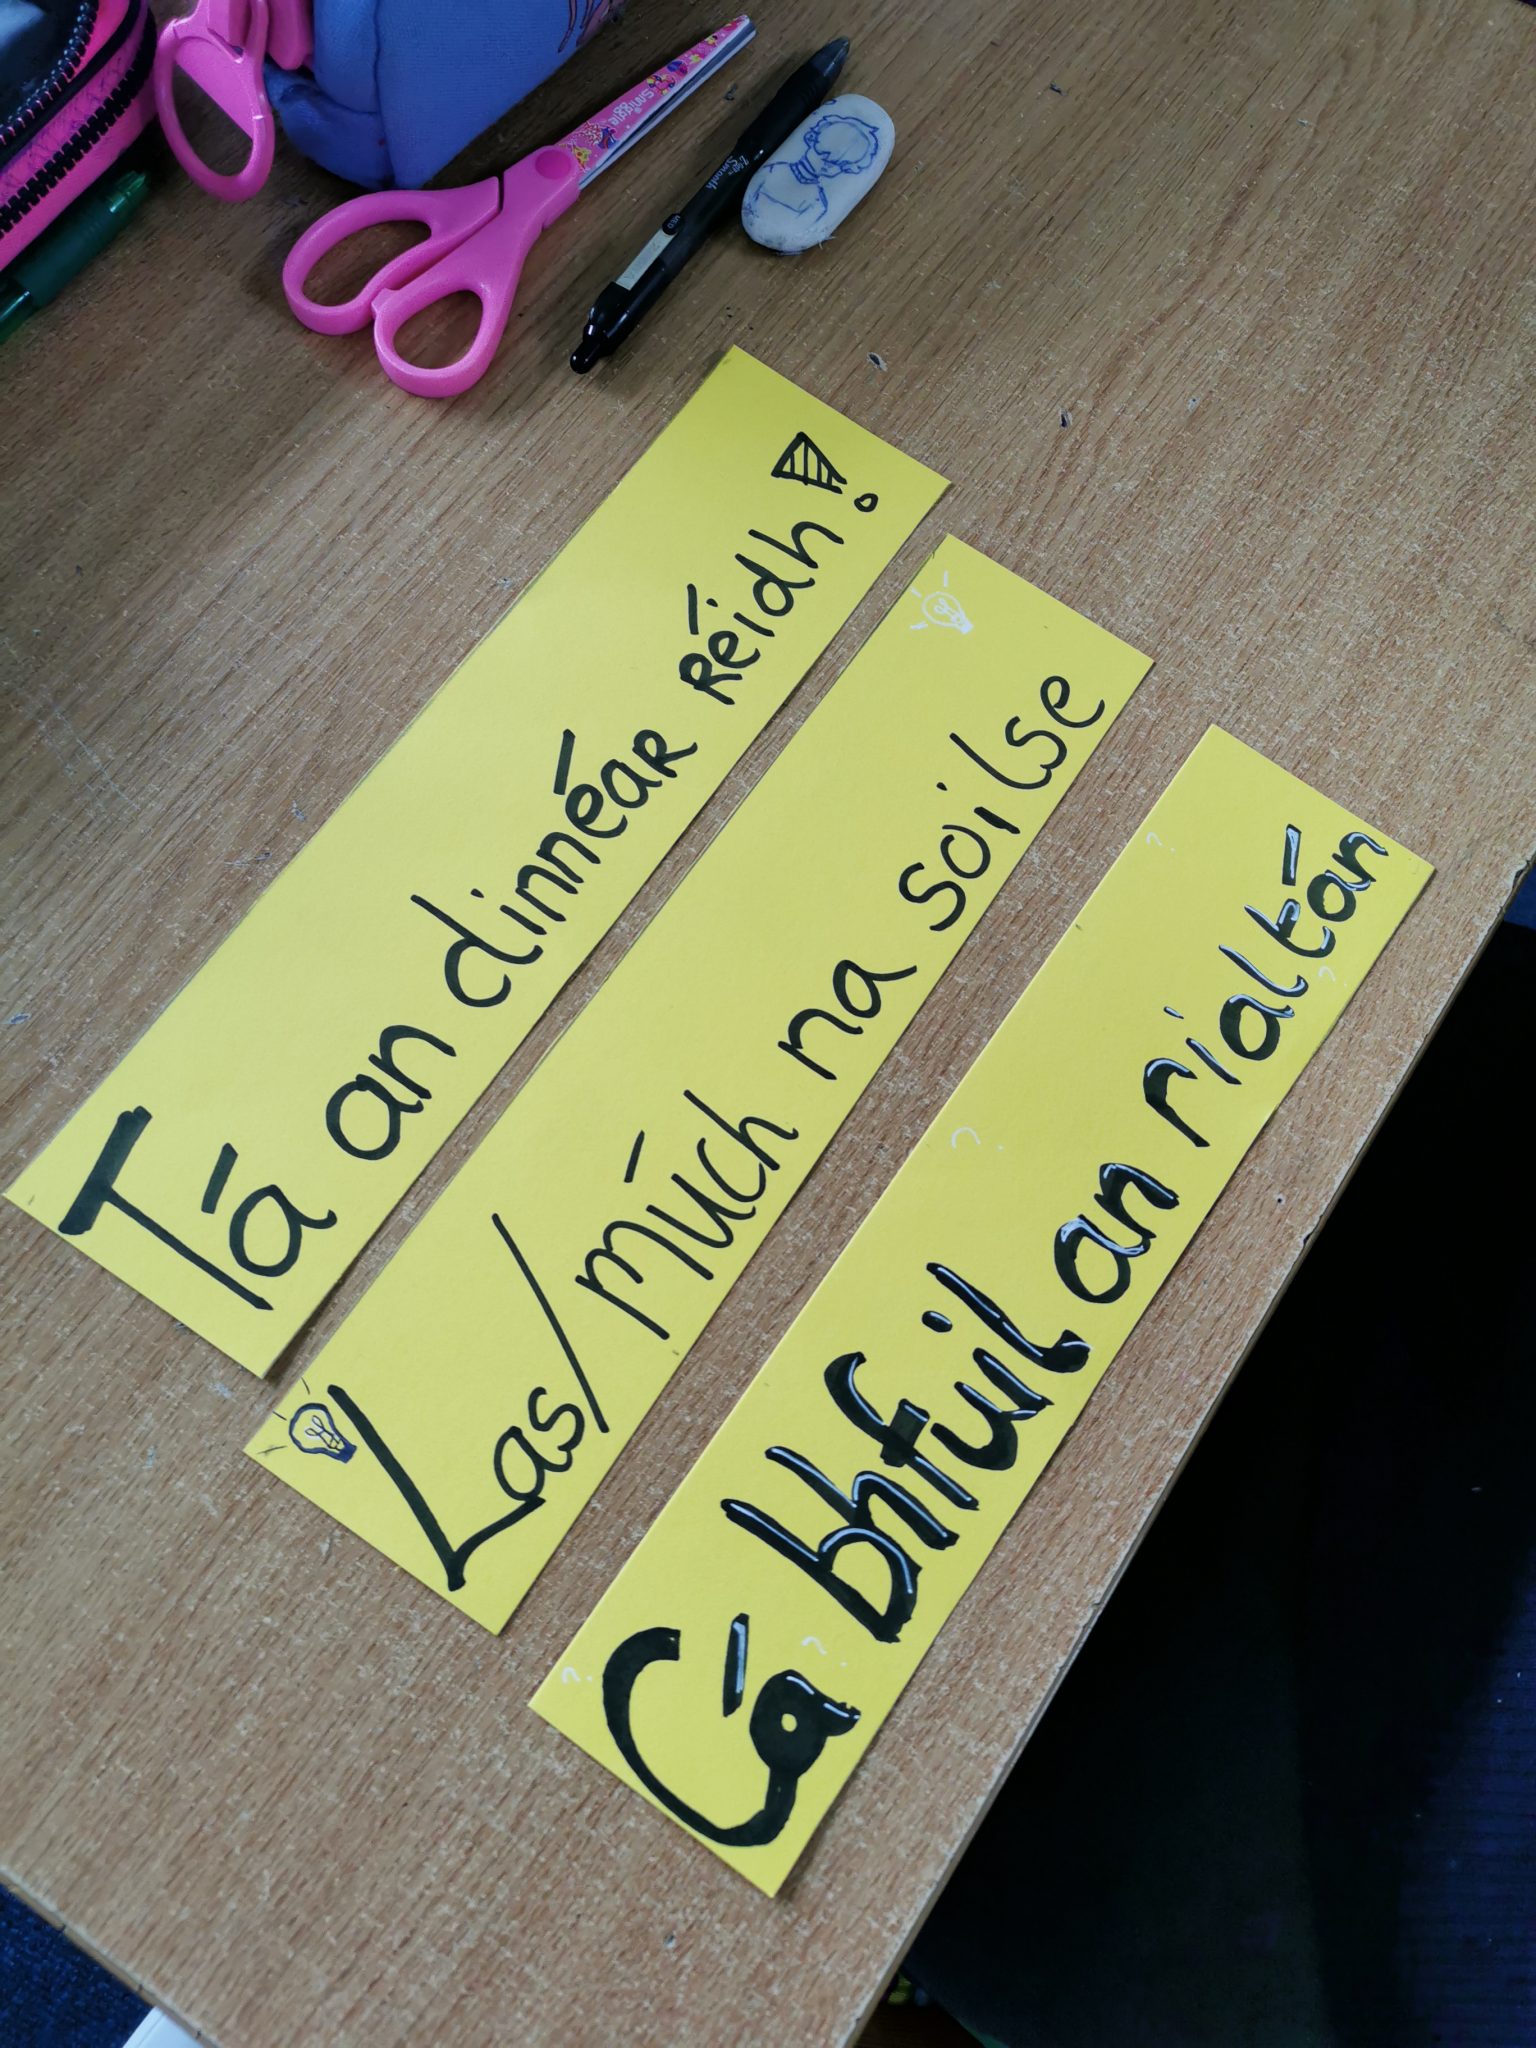 Tá an dinnéar réidh!
Las/múch na soilse
Cá bhfuil an rialtán
Smiggle
Z Grip Smooth